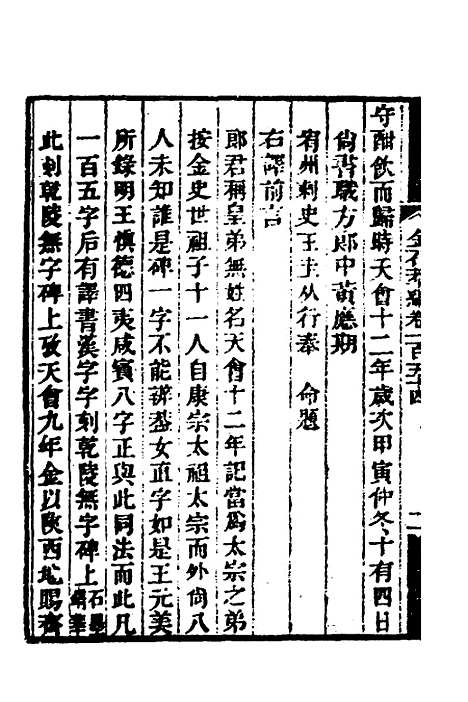 守酣飲而歸時天會十二年歲次甲寅仲冬十有四日
尚書職方郎中黃應期
宥州刺史王圭从行奉 命題
右譯前言
郎君稱皇弟無姓名天會十二年記當爲太宗之弟
按金史世祖子十一人自康宗太祖太宗而外尚八
人未知誰是碑一字不能辨蓋女直字如是王元美
所錄明王愼德四夷咸賓八字正與此同法而此凡
一百五字后有譯書漢字刻乾陵無字碑上石墨鐫華
此刻乾陵無字碑上攷天會九年金以陝西地賜齊
金石萃編卷一百五十四
二